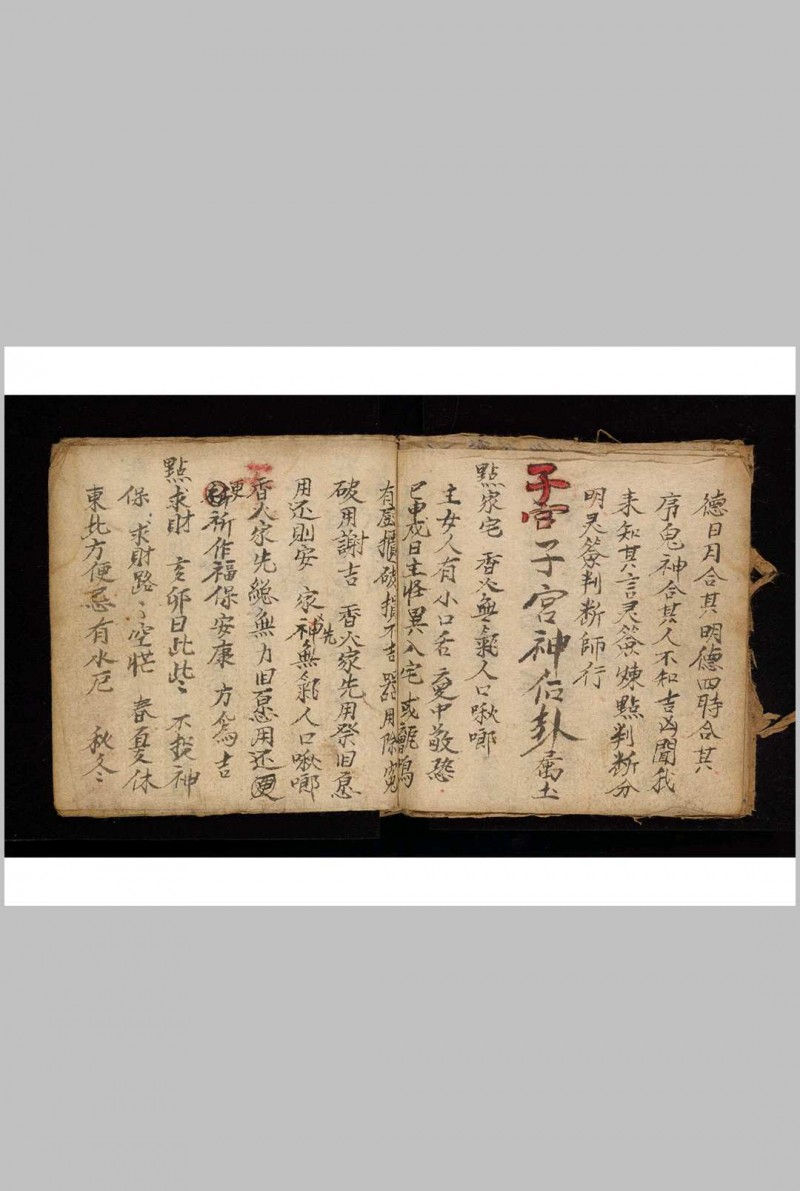 德日月合其明德四時合其
序鬼神合其人不知吉凶聞我
未知其言灵簽煉點判断分
明灵簽判断師行
子宮 子宮神佔卦属土
點家宅 香火無氣人口啾唧
主女人有小口舌 夜中敬恐
巳申戌日主怪異入宅 或
有 損破損不吉 器用除
破用謝吉 香火家先用祭旧愿
用还則安 家神先無氣人口啾唧
香火家先総無力旧愿用还更
更祈作福保安康 方爲吉
點求財 亥卯日此些〻 不投神
保〻求財路〻空忙 春夏休
東北方便忌有水厄 秋冬〻